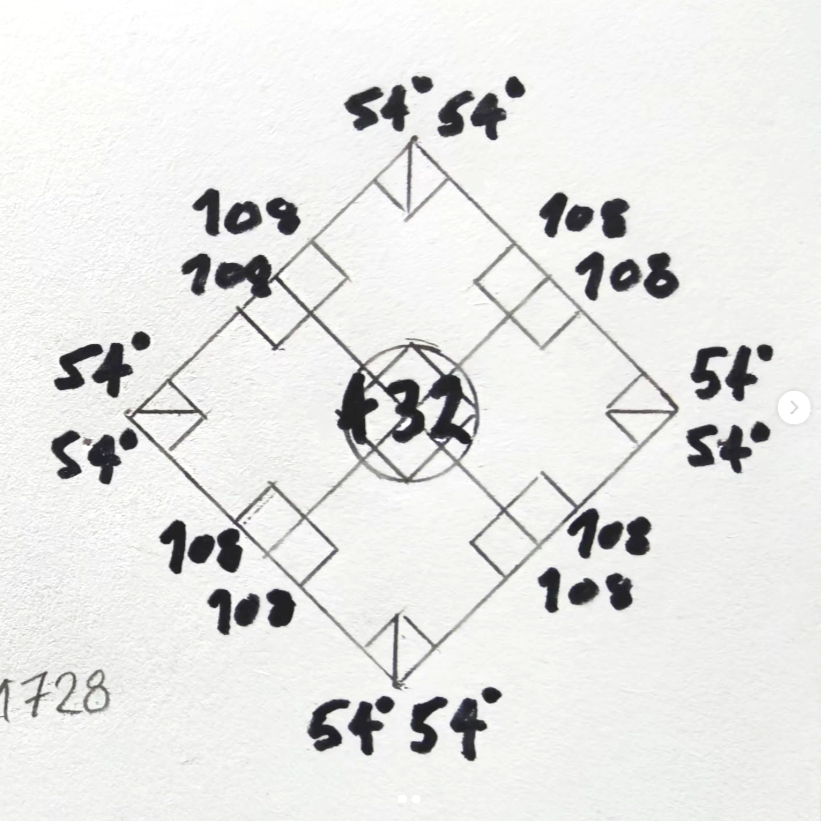 54° 54°
108 108
108 108
54° 54°
432
54° 54°
108 108
108 108
1728
54° 54°